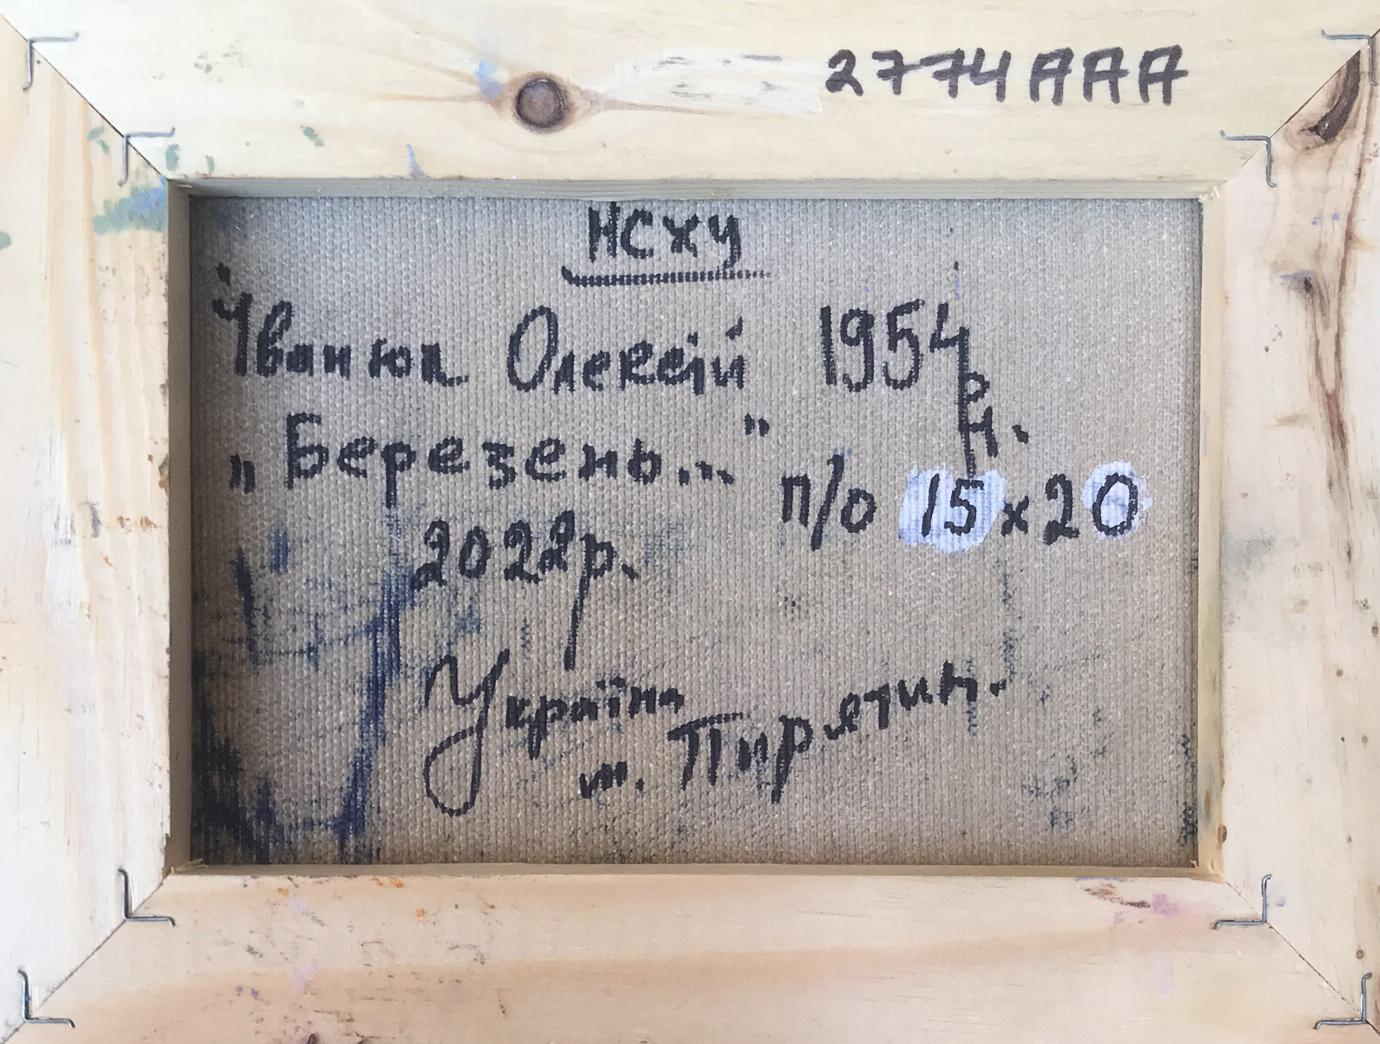 2774AAA
НСХУ
Іванюк Олексій 1954 р.н.
„Березень..." п/о 15х20
2022р.
Україна
м. Пирятин.